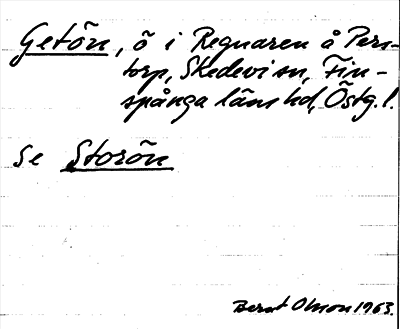 Getön, ö i Regnaren å Pers-
torp, Skedevi sn, Fin-
spånga läns hd, Östg. l.
Se Storön
Bernt Olsson 1963.